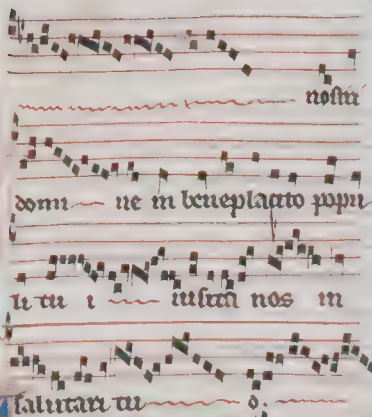 nostri
domi ne in beneplacito popu
li tu i uisita nos in
salutari tu o: